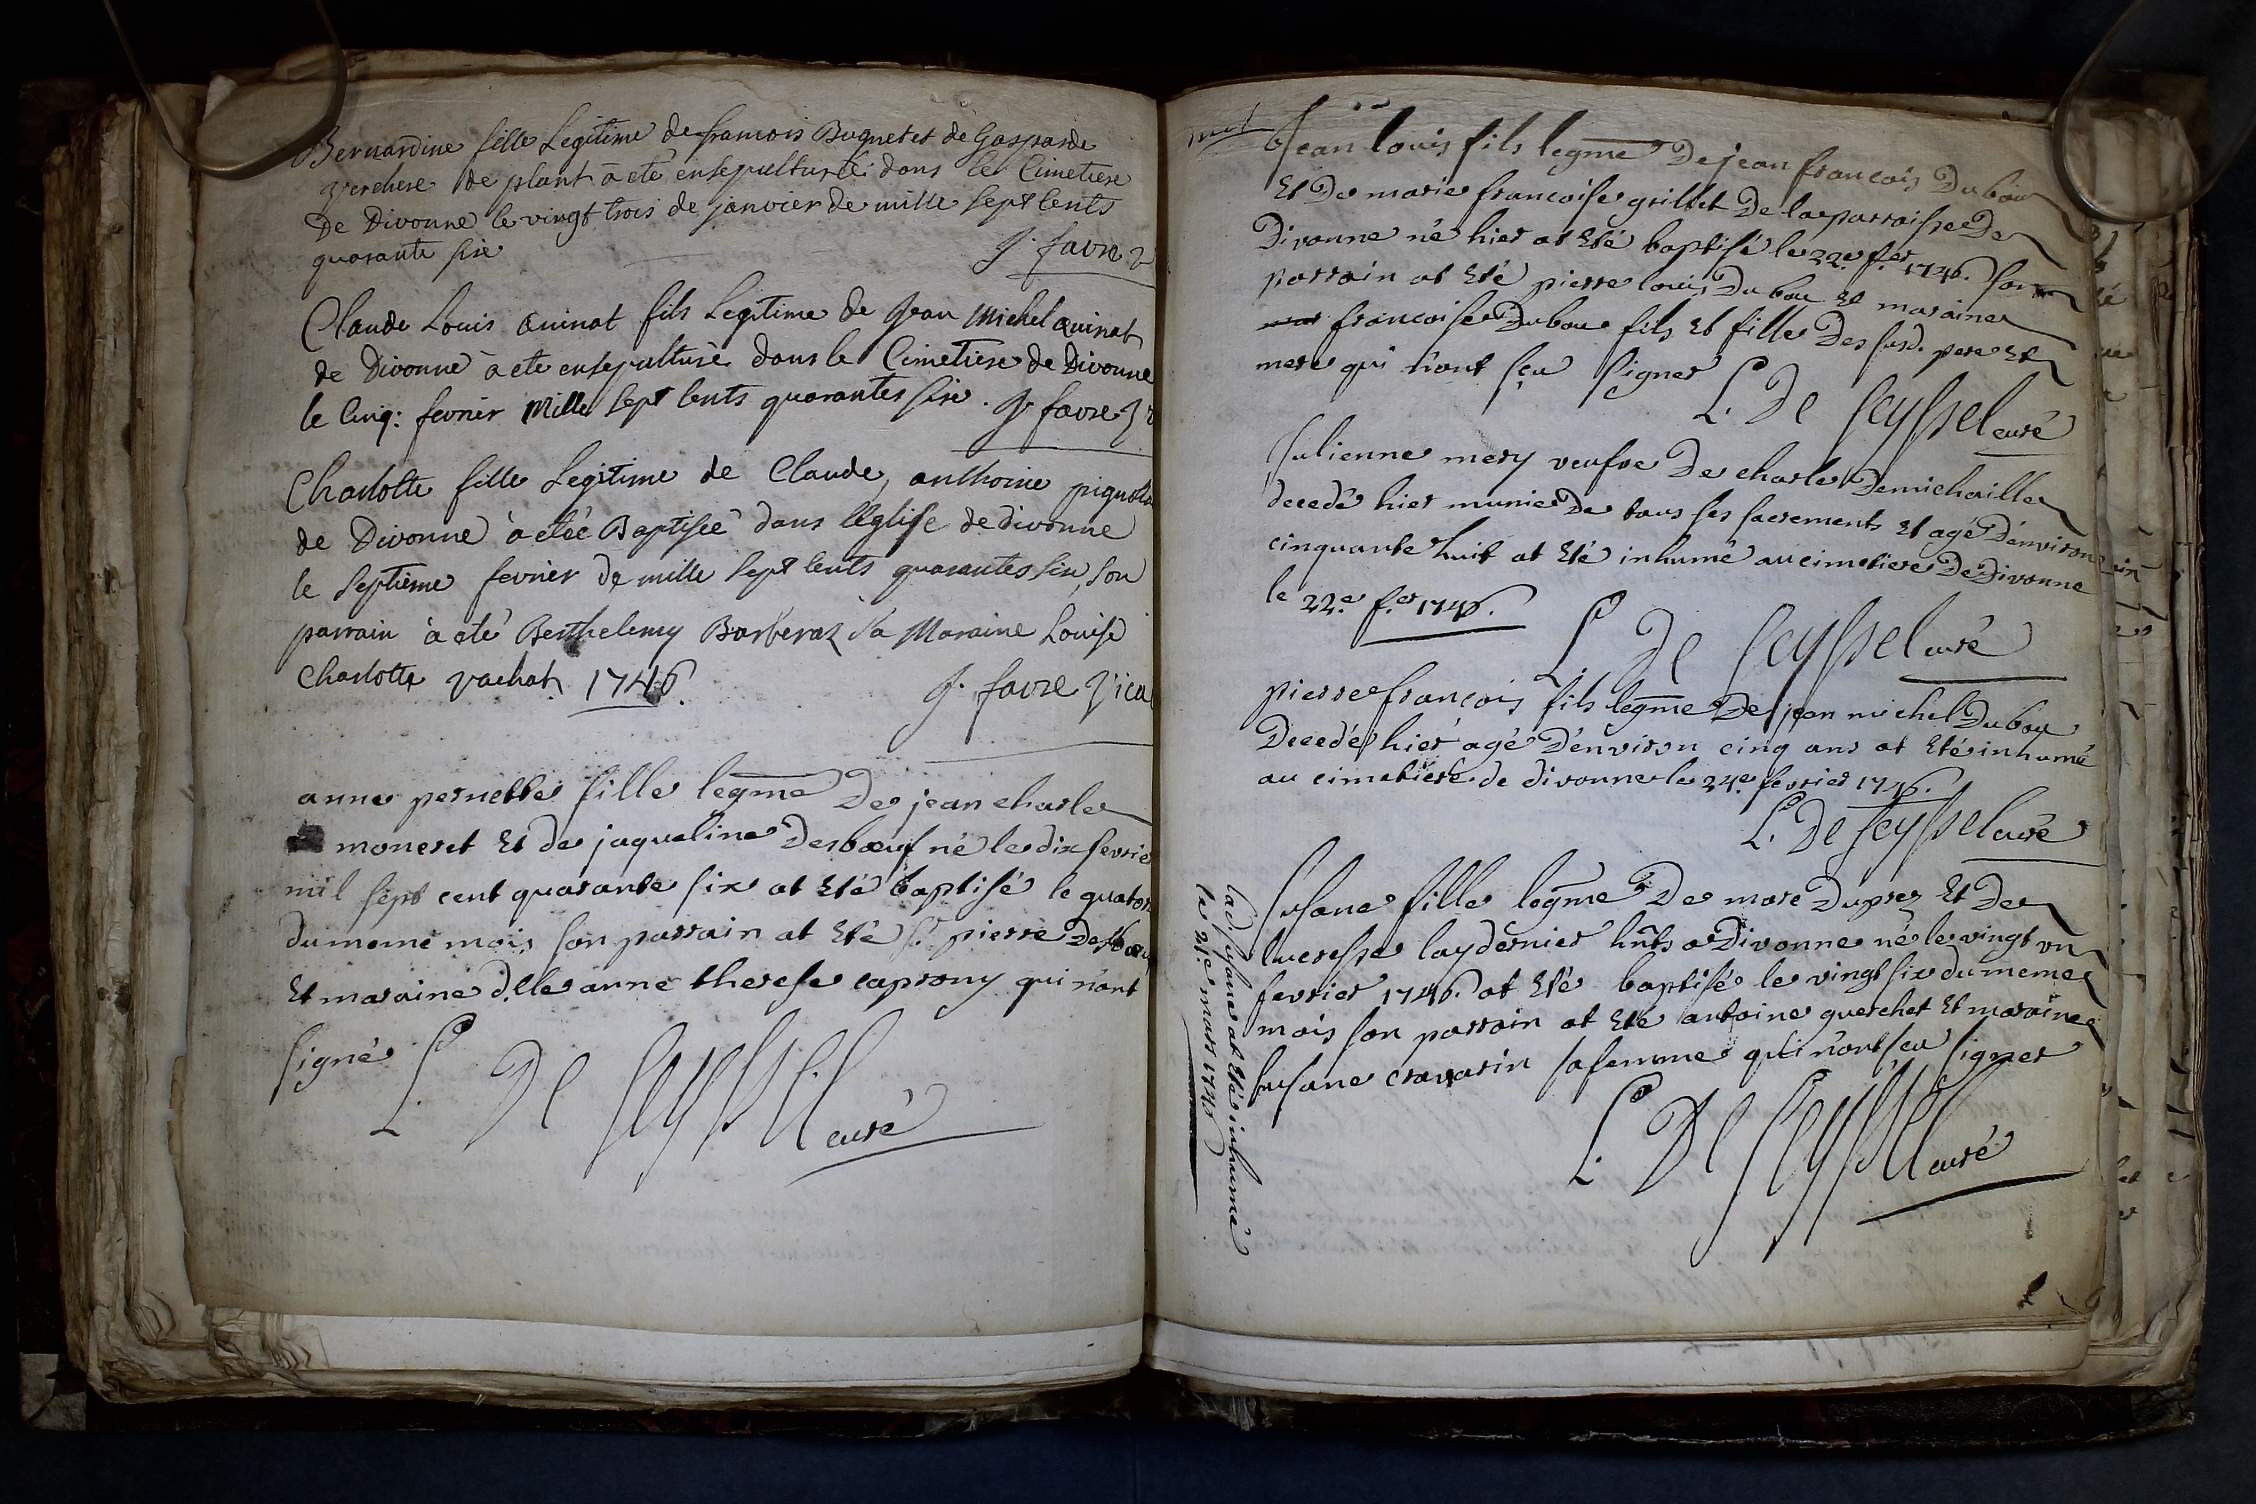 Bernardine fille Legitime de francois Buquet et de Gasparde
verchere de plant à eté ensepulturée dans le Cimetiere
de Divonne le vingt trois de janvier de mille sept cents
quarante six
J. favre
Claude Louis quinat fils Legitime de Jean Michel quinat
de Divonne à ete ensepulturé dans le Cimetiere de Divonne
le Cinq: fevrier Mille sept cents quarantes six. J. favre
Charlotte fille Legitime de Claude, anthoine
de Divonne à etée Baptisée dans l'église de divonne
le septieme fevrier de mille sept cents quarantes six, son
parrain à eté Berthelemy Barberaz sa Maraine Louise
Charlotte vachat 1746.
J. favre vica
anne pernette fille legme De jean charle
moneret Et de jaqueline Desbœuf né le dix fevrie
mil sept cent quarante six at Eté baptisé le quator
du meme mois son parrain at Eté Sr. pierre Desbœu
Et maraine d.lle anne therese caprony qui n'ont
signé
L. De Seyssel curé
Jean louis fils legme De jean francois Dubou
Et De marie francoise grillet De la parroisse De
Divonne né hier at Eté baptisé le 22.e f.er 1746. son
parrain at Eté pierre louis Dubou Et maraine
francoise Dubou fils Et fille Des susd. pere Et
mere qui n'ont sçu signer
L. De Seyssel curé
Julienne mery veufve De charle Demichaille
decedé hier munie De tous ses sacrements Et agé D'environ
cinquante huit at Eté inhumé au cimetiere De Divonne
le 22.e f.er 1746.
L. De Seyssel curé
pierre françois fils legme De jean michel Dubou
Decedé hier agé D'environ cinq ans at Eté inhumé
au cimetiere de divonne le 24.e fevrier 1746.
L. De Seyssel curé
Susane fille legme De marc Duprez Et De
lucresse laydernier hnts a Divonne né le vingt un
fevrier 1746. at Eté baptisé le vingt six du meme
mois son parrain at Eté antoine guerchet Et maraine
susane cravarin sa femme qui n'ont sçu signer
L. De Seyssel curé
lad. susane at Eté inhumé
le 21.e mars 1746